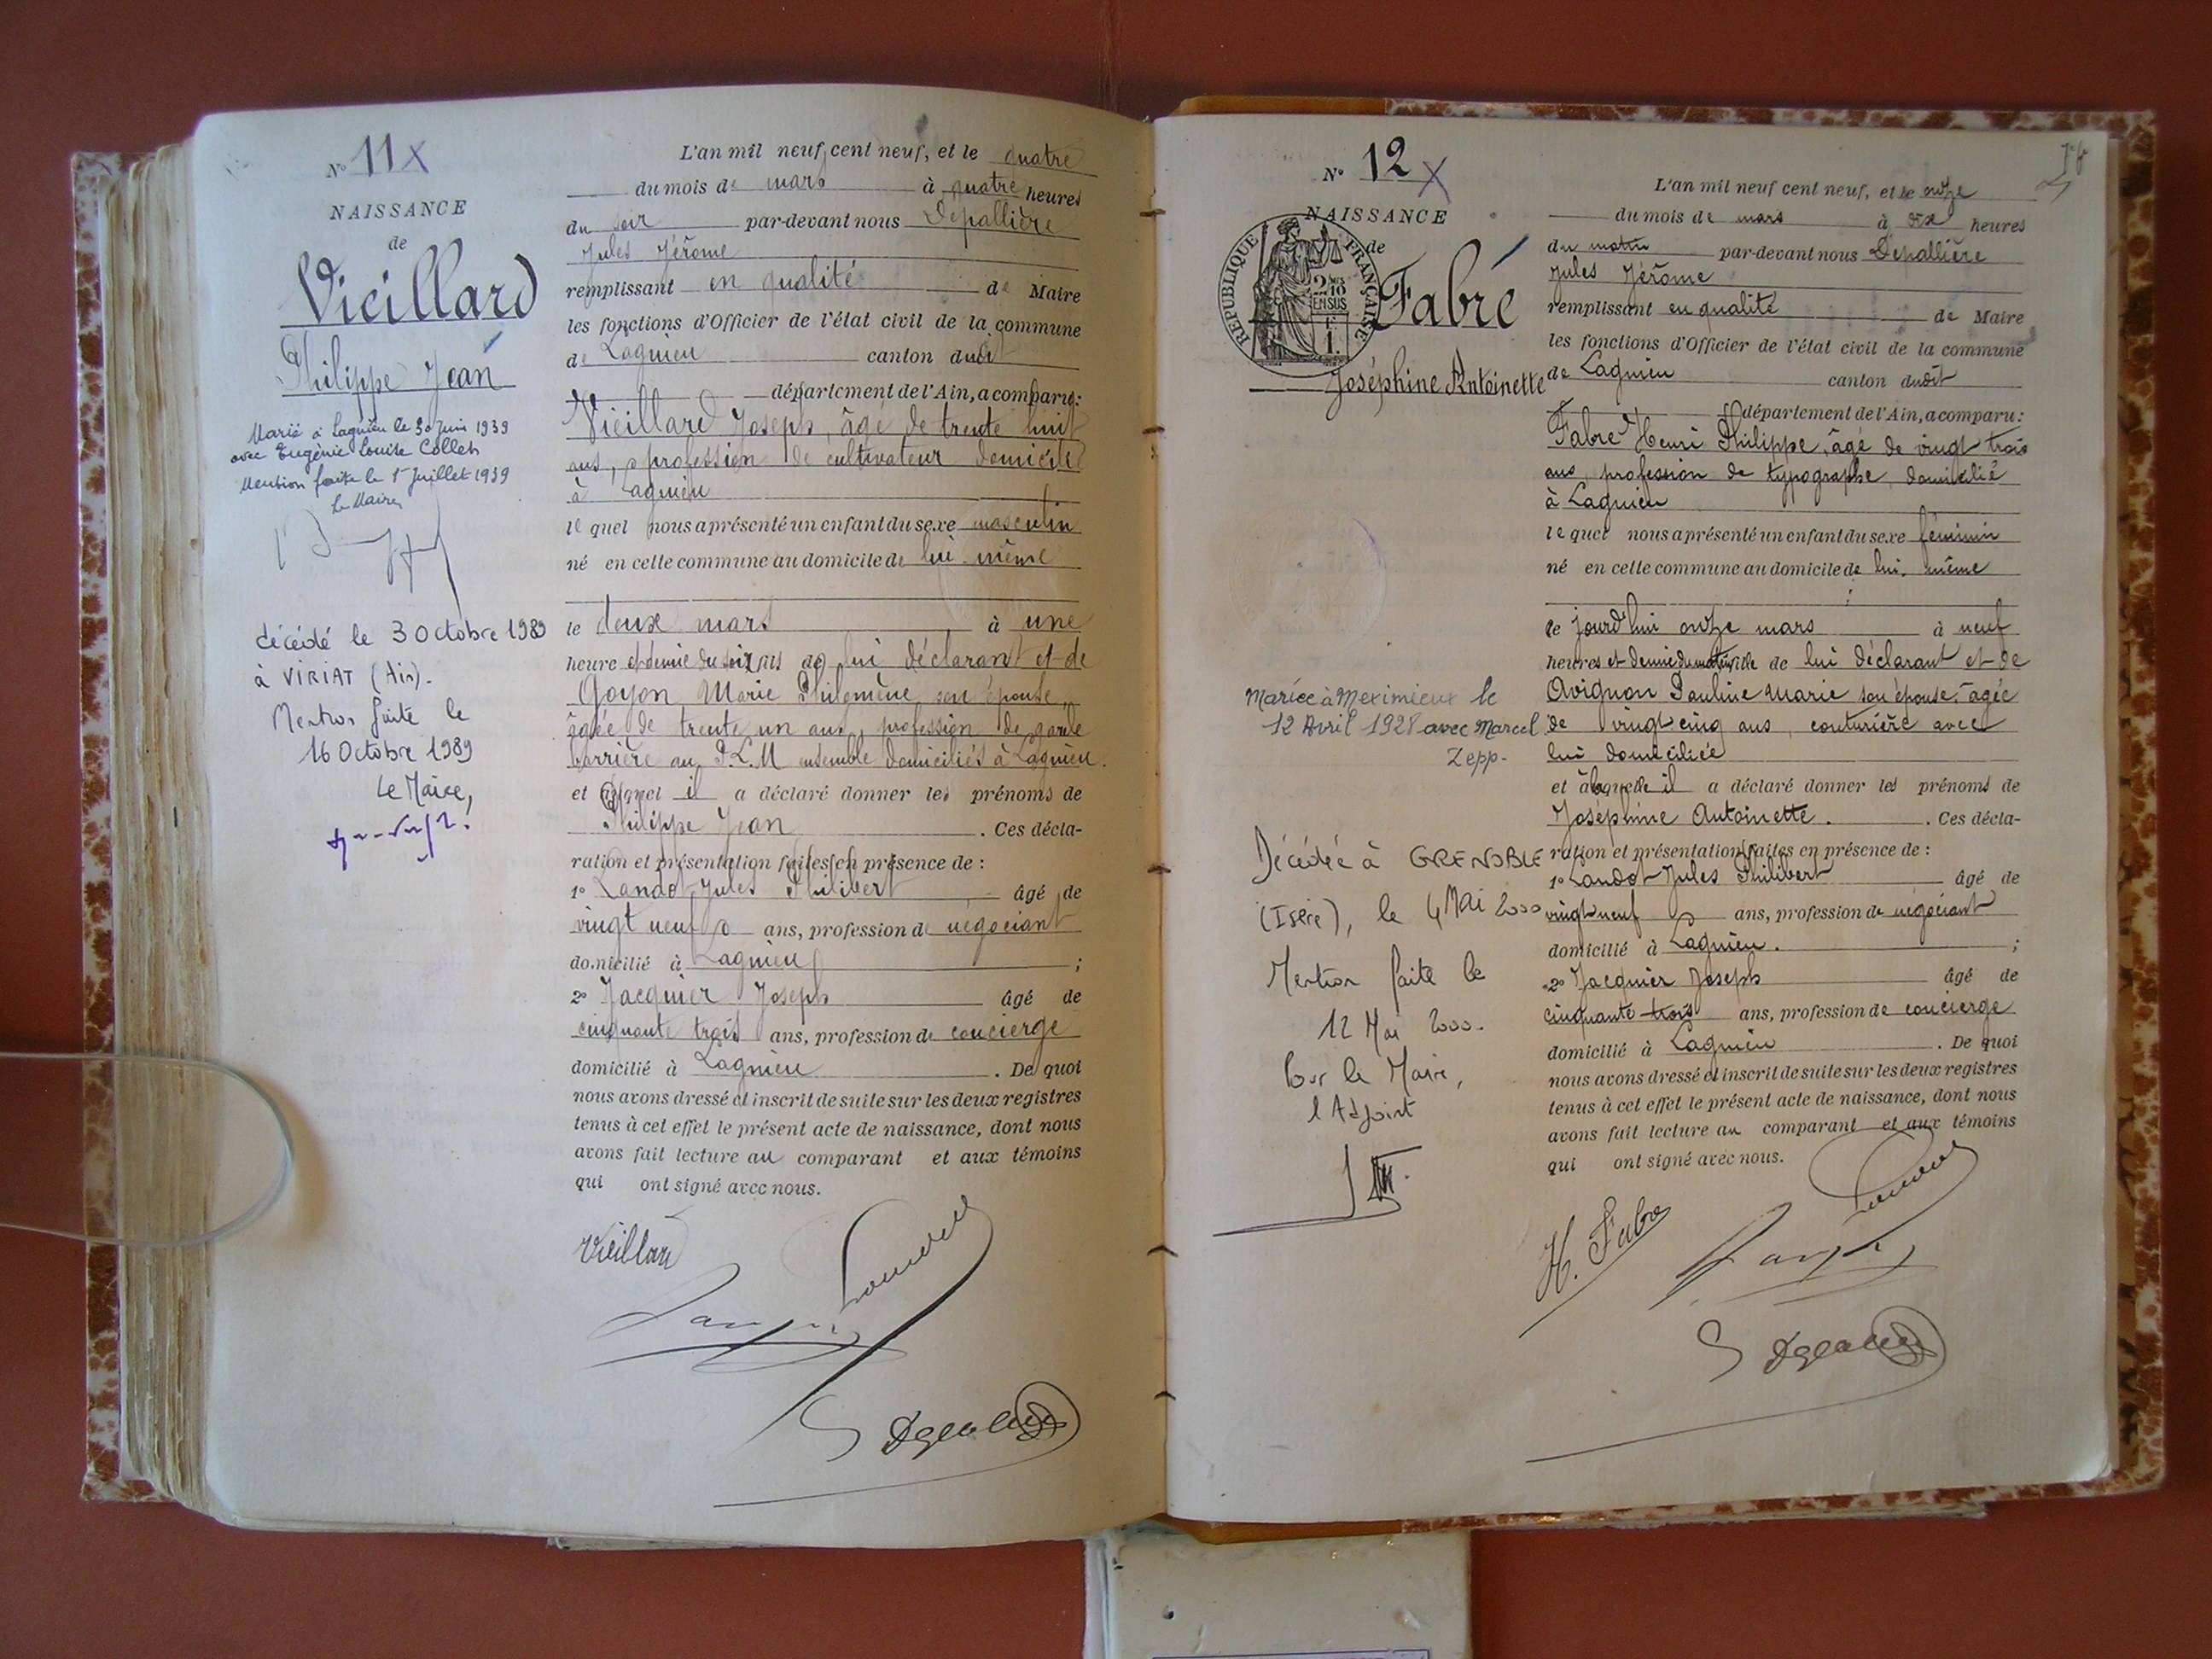 N° 11 X
NAISSANCE
de
Vieillard
Philippe Jean
Marié à Lagnieu le 30 Juin 1939
avec Eugénie Louise Collet
Mention faite le 1er Juillet 1939
Le Maire
décédé le 3 Octobre 1989
à VIRIAT (Ain).
Mention faite le
16 Octobre 1989
Le Maire,
L'an mil neuf cent neuf, et le quatre
du mois de mars à quatre heures
du soir par-devant nous Depallière
Jules Jérôme
remplissant en qualité de Maire
les fonctions d'Officier de l'état civil de la commune
de Lagnieu canton dudit
département de l'Ain, a comparu:
Vieillard Joseph, âgé de trente huit
ans, profession de cultivateur domicilié
à Lagnieu
lequel nous a présenté un enfant du sexe masculin
né en cette commune au domicile de lui-même
le deux mars à une
heure et demie du soir fils de lui déclarant et de
Goyon Marie Philomène son épouse,
âgée de trente un ans, profession de garde
barrière au P.L.M ensemble domiciliés à Lagnieu.
et auquel il a déclaré donner les prénoms de
Philippe Jean . Ces décla-
ration et présentation faites en présence de :
1° Landot Jules Philibert âgé de
vingt neuf ans, profession de négociant
domicilié à Lagnieu ;
2° Jacquier Joseph âgé de
cinquante trois ans, profession de concierge
domicilié à Lagnieu . De quoi
nous avons dressé et inscrit de suite sur les deux registres
tenus à cet effet le présent acte de naissance, dont nous
avons fait lecture au comparant et aux témoins
qui ont signé avec nous.
Vieillard
N° 12 X
NAISSANCE
de
REPUBLIQUE FRANÇAISE
2/10 EN SUS
1 F.
Fabre
Joséphine Antoinette
Mariée à Meximieux le
12 Avril 1928 avec Marcel
Zepp.
Décédée à GRENOBLE
(Isère), le 4 Mai 2000
Mention faite le
12 Mai 2000.
Pour le Maire,
l'Adjoint
L'an mil neuf cent neuf, et le onze
du mois de mars à dix heures
du matin par-devant nous Depallière
Jules Jérôme
remplissant en qualité de Maire
les fonctions d'Officier de l'état civil de la commune
de Lagnieu canton dudit
département de l'Ain, a comparu:
Fabre Henri Philippe, âgé de vingt trois
ans, profession de typographe, domicilié
à Lagnieu
lequel nous a présenté un enfant du sexe féminin
né en cette commune au domicile de lui-même
le jourd'hui onze mars à neuf
heures et demie du matin fille de lui déclarant et de
Avignon Pauline Marie son épouse, âgée
de vingt cinq ans, couturière avec
lui domiciliée
et à laquelle il a déclaré donner les prénoms de
Joséphine Antoinette. . Ces décla-
ration et présentation faites en présence de :
1° Landot Jules Philibert âgé de
vingt neuf ans, profession de négociant
domicilié à Lagnieu. ;
2° Jacquier Joseph âgé de
cinquante trois ans, profession de concierge
domicilié à Lagnieu . De quoi
nous avons dressé et inscrit de suite sur les deux registres
tenus à cet effet le présent acte de naissance, dont nous
avons fait lecture au comparant et aux témoins
qui ont signé avec nous.
H. Fabre